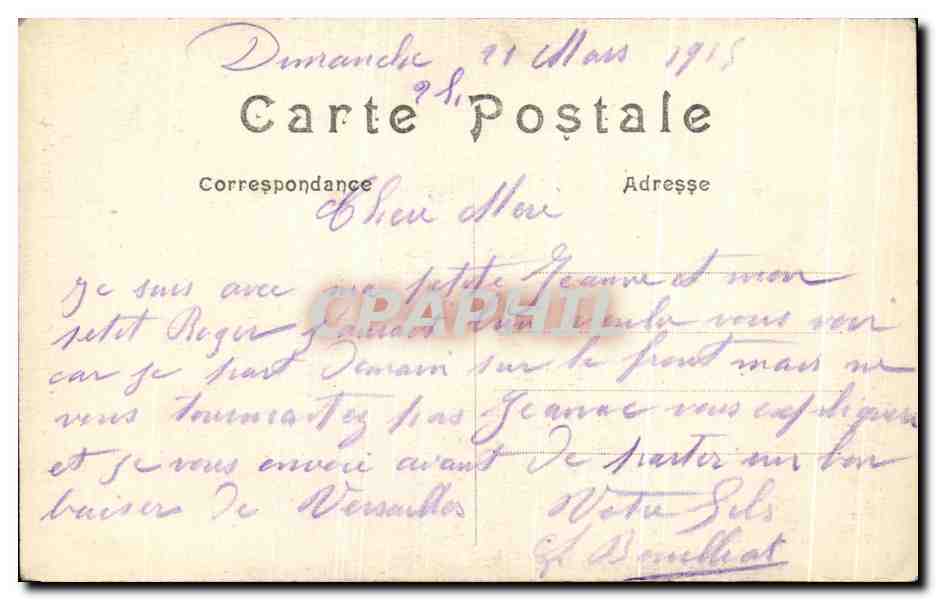 Dimanche 21 Mars 1915
Carte Postale
Correspondance Adresse
Cheri Meri
Je suis avec ma petite Jeanne et mon
petit Roger j'aurais bien voulu vous voir
car je part demain sur le front mais ne
vous tourmentez pas Jeanne vous expliquera
et je vous envoie avant de parter un bon
baiser de Versailles Votre fils
CPARAMA